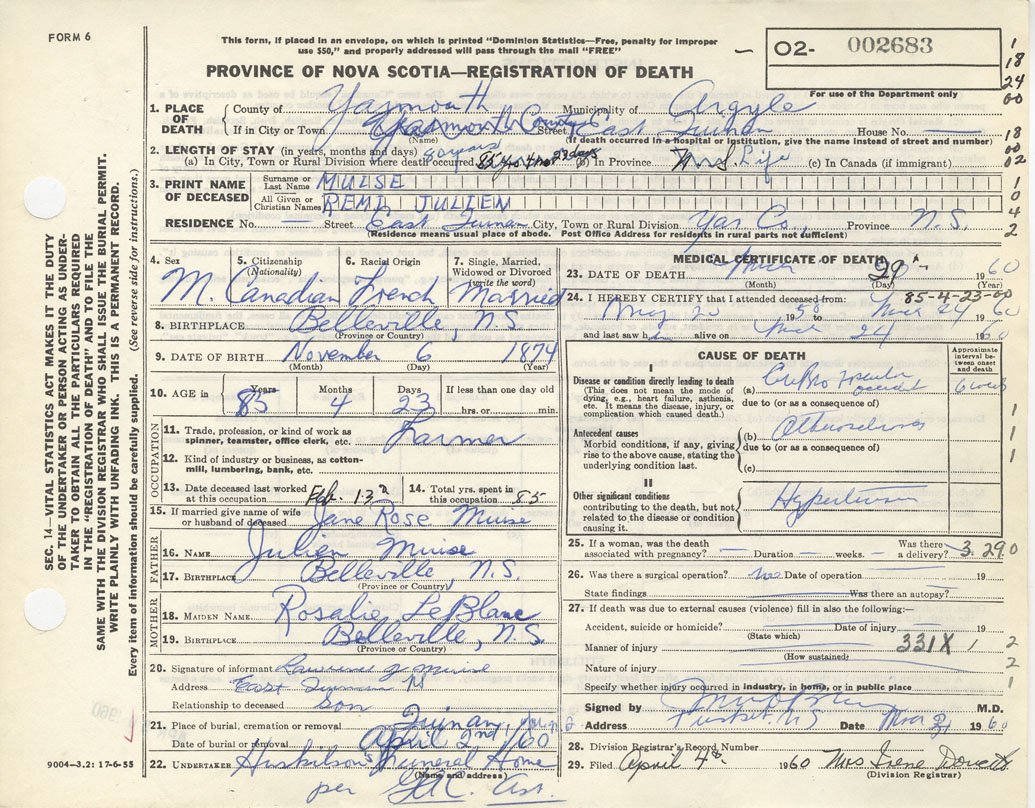 FORM 6
This form, if placed in an envelope, on which is printed "Dominion Statistics—Free, penalty for improper
use $50," and properly addressed will pass through the mail "FREE"
PROVINCE OF NOVA SCOTIA—REGISTRATION OF DEATH
O2- 002683
For use of the Department only
1
18
24
00
18
00
02
1
0
4
2
1. PLACE OF DEATH
County of Yarmouth Municipality of Argyle
If in City or Town Yarmouth County Street East Quinan House No.
(Name) (If death occurred in a hospital or institution, give the name instead of street and number)
2. LENGTH OF STAY (in years, months and days)
(a) In City, Town or Rural Division where death occurred 85 yrs 4 mo 23 days (b) in Province (c) In Canada (if immigrant)
3. PRINT NAME OF DECEASED
Surname or Last Name MUISE
All Given or Christian Names REMI JULIEN
RESIDENCE No. Street East Quinan City, Town or Rural Division Yar Co., Province N.S.
(Residence means usual place of abode. Post Office Address for residents in rural parts not sufficient)
4. Sex M.
5. Citizenship (Nationality) Canadian
6. Racial Origin French
7. Single, Married, Widowed or Divorced (write the word) Married
8. BIRTHPLACE Belleville, N.S.
(Province or Country)
9. DATE OF BIRTH November 6 1874
(Month) (Day) (Year)
10. AGE in Years 85 Months 4 Days 23 If less than one day old
hrs. or min.
OCCUPATION
11. Trade, profession, or kind of work as spinner, teamster, office clerk, etc. Farmer
12. Kind of industry or business, as cotton-mill, lumbering, bank, etc.
13. Date deceased last worked at this occupation Feb.
14. Total yrs. spent in this occupation 85
15. If married give name of wife or husband of deceased Jane Rose Muise
FATHER
16. NAME Julien Muise
17. BIRTHPLACE Belleville, N.S.
(Province or Country)
MOTHER
18. MAIDEN NAME Rosalie LeBlanc
19. BIRTHPLACE Belleville, N.S.
(Province or Country)
20. Signature of informant Muise
Address East Quinan NS
Relationship to deceased Son
21. Place of burial, cremation or removal Quinan,
Date of burial or removal April 2nd 1960
22. UNDERTAKER Huskilson's Funeral Home
(Name and address)
per
MEDICAL CERTIFICATE OF DEATH
23. DATE OF DEATH Mar 29 1960
(Month) (Day) (Year)
85-4-23-00
24. I HEREBY CERTIFY that I attended deceased from:
May 20 1958 to Mar 24 1960
and last saw him alive on Mar 24 1960
CAUSE OF DEATH
Approximate interval between onset and death
I
Disease or condition directly leading to death
(This does not mean the mode of dying, e.g., heart failure, asthenia, etc. It means the disease, injury, or complication which caused death.)
(a) Cerebro vascular accident 6 weeks
due to (or as a consequence of)
Antecedent causes
Morbid conditions, if any, giving rise to the above cause, stating the underlying condition last.
(b) Atherosclerosis
due to (or as a consequence of)
(c)
II
Other significant conditions
contributing to the death, but not related to the disease or condition causing it.
Hypertension
1
1
1
25. If a woman, was the death associated with pregnancy? Duration weeks. Was there a delivery? 3.290
26. Was there a surgical operation? no Date of operation 19
State findings Was there an autopsy?
27. If death was due to external causes (violence) fill in also the following:—
Accident, suicide or homicide? Date of injury 19
(State which)
Manner of injury 331X 1 2
(How sustained)
Nature of injury 2
Specify whether injury occurred in industry, in home, or in public place 1
Signed by M.D.
Address Tusket NS Date Mar 31 1960
28. Division Registrar's Record Number
29. Filed April 4th 1960 Mrs Irene Doucette
(Division Registrar)
SEC. 14—VITAL STATISTICS ACT MAKES IT THE DUTY
OF THE UNDERTAKER OR PERSON ACTING AS UNDER-
TAKER TO OBTAIN ALL THE PARTICULARS REQUIRED
IN THE "REGISTRATION OF DEATH" AND TO FILE THE
SAME WITH THE DIVISION REGISTRAR WHO SHALL ISSUE THE BURIAL PERMIT.
WRITE PLAINLY WITH UNFADING INK. THIS IS A PERMANENT RECORD.
Every item of information should be carefully supplied. (See reverse side for instructions.)
9004—3.2: 17-6-55